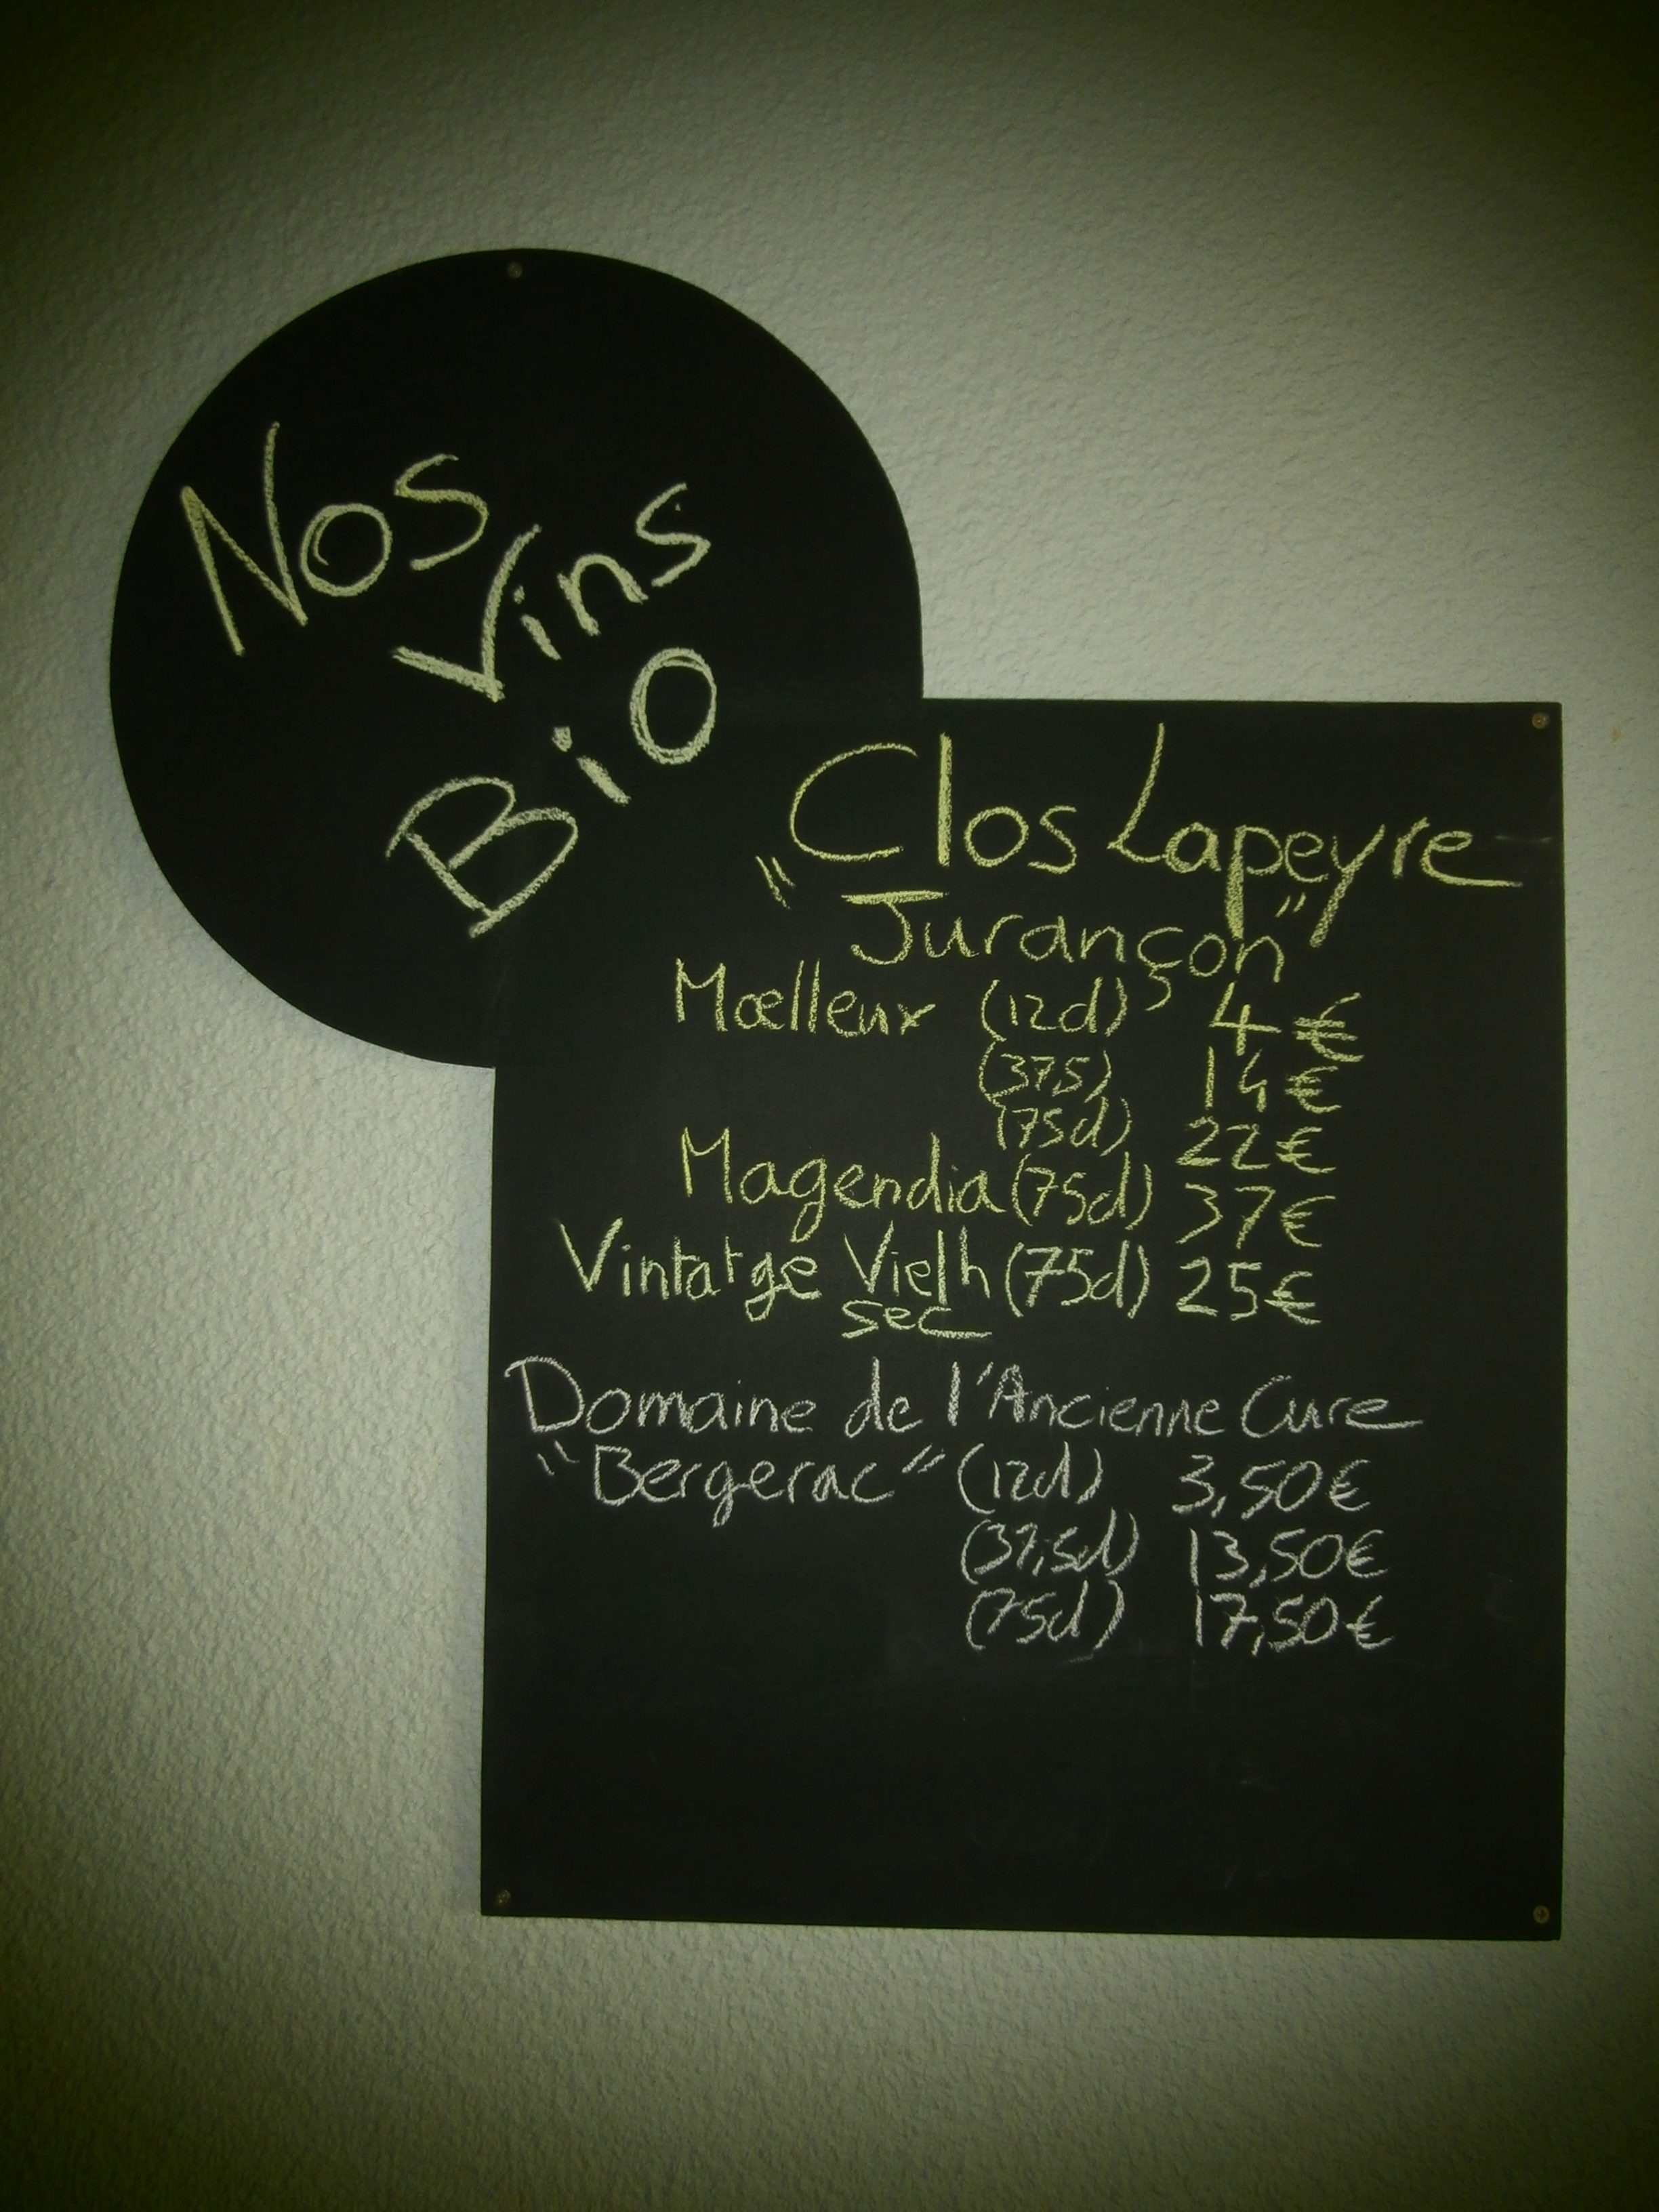 Nos
Vins
Bio
Clos Lapeyre
"Jurançon"
Mœlleux (12cl) 4€
(37,5) 14€
(75cl) 22€
Magendia (75cl) 37€
Vintatge Vielh (75cl) 25€
sec
Domaine de l'Ancienne Cure
"Bergerac" (12cl) 3,50€
(37,5cl) 13,50€
(75cl) 17,50€